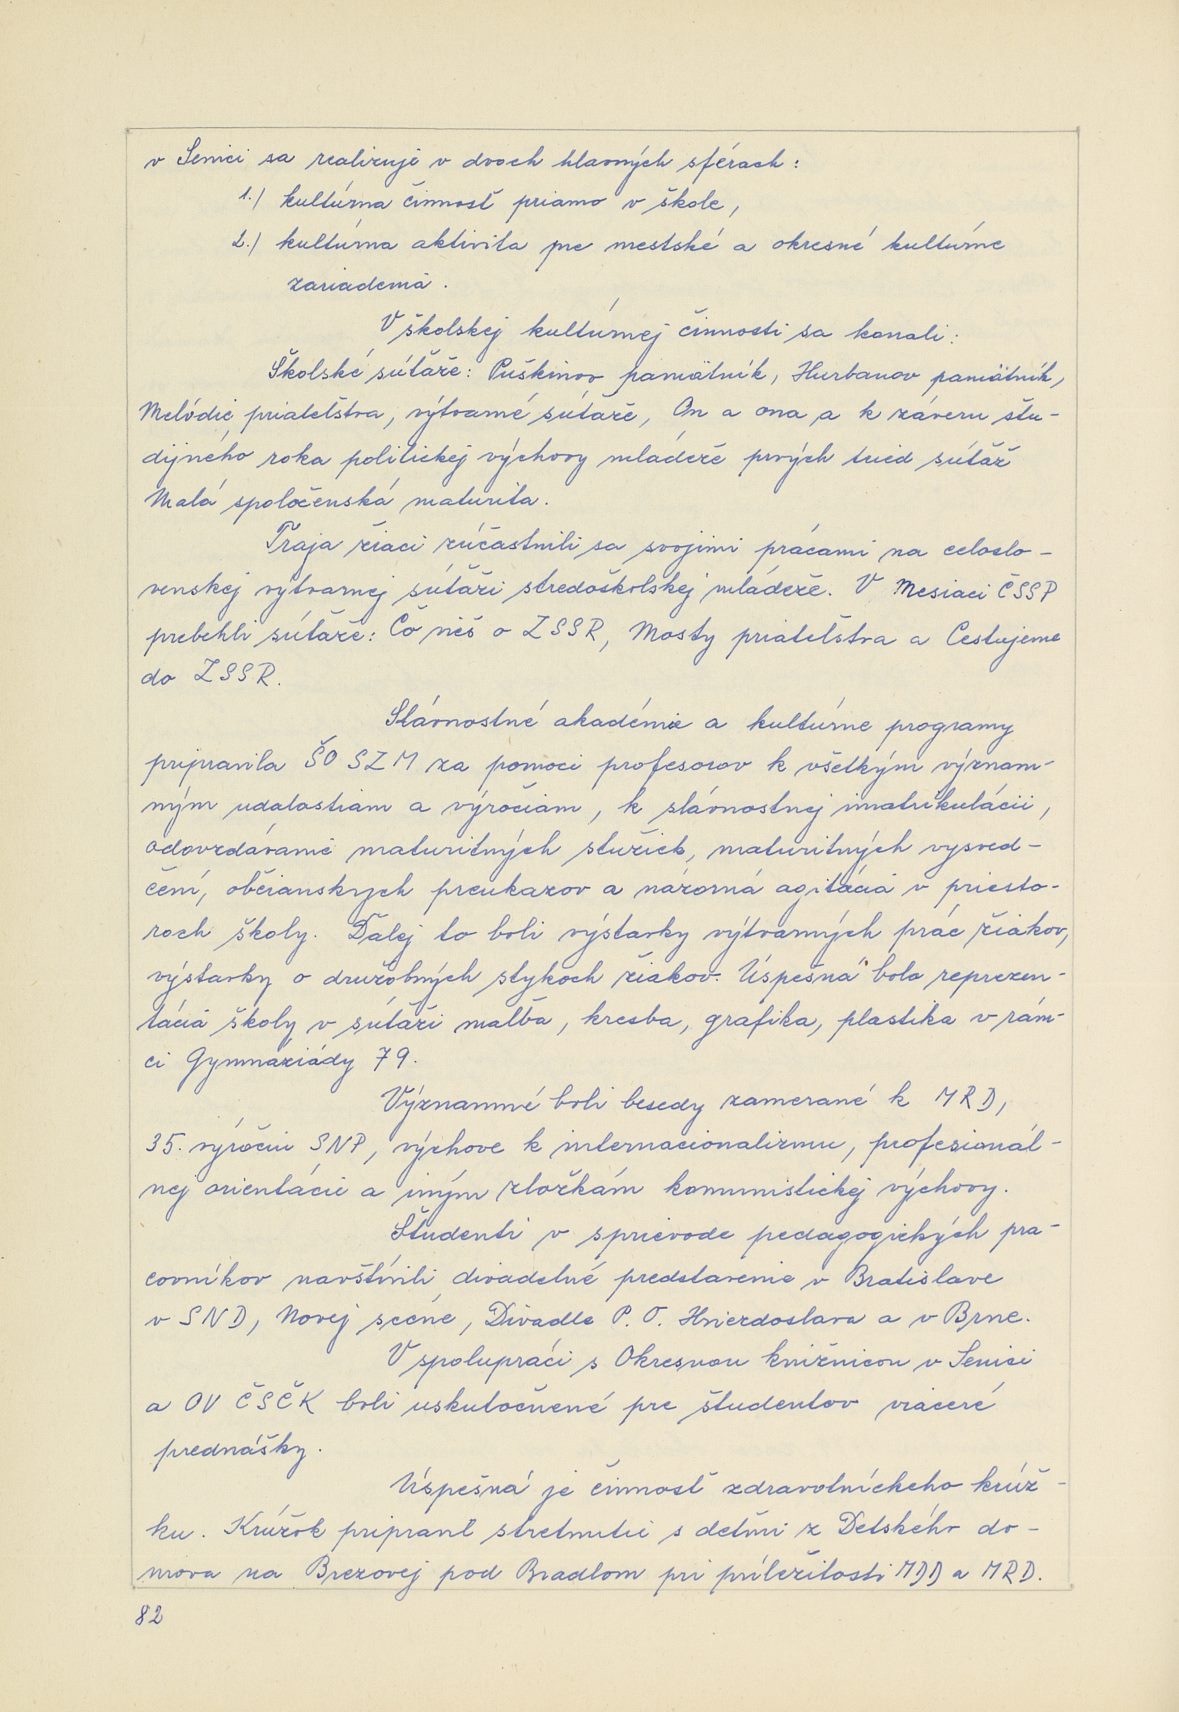 v Senici sa realizuje v dvoch hlavných sférach:
1./ kultúrna činnosť priamo v škole,
2./ kultúrna aktivita pre mestské a okresné kultúrne
zariadenia.
V školskej kultúrnej činnosti sa konali:
Školské súťaže: Puškinov pamätník, Hurbanov pamätník,
Melódie priateľstva, výtvarné súťaže, On a ona a k záveru štu-
dijného roka politickej výchovy mládeže prvých tried súťaž
Malá spoločenská maturita.
Traja žiaci zúčastnili sa svojimi prácami na celoslo-
venskej výtvarnej súťaži stredoškolskej mládeže. V Mesiaci ČSSP
prebehli súťaže: Čo vieš o ZSSR, Mosty priateľstva a Cestujeme
do ZSSR.
Slávnostné akadémie a kultúrne programy
pripravila ŠO SZM za pomoci profesorov k všetkým význam-
ným udalostiam a výročiam, k slávnostnej imatrikulácii,
odovzdávanie maturitných stužiek, maturitných vysved-
čení, občianskych preukazov a názorná agitácia v priesto-
roch školy. Ďalej to boli výstavky výtvarných prác žiakov,
výstavky o družobných stykoch žiakov. Úspešná bola reprezen-
tácia školy v súťaži maľba, kresba, grafika, plastika v rám-
ci Gymnaziády 79.
Významné boli besedy zamerané k MRD,
35. výročiu SNP, výchove k internacionalizmu, profesionál-
nej orientácie a iným zložkám komunistickej výchovy.
Študenti v sprievode pedagogických pra-
covníkov navštívili divadelné predstavenie v Bratislave
v SND, Novej scéne, Divadle P. O. Hviezdoslava a v Brne.
V spolupráci s Okresnou knižnicou v Senici
a OV ČSČK boli uskutočnené pre študentov viaceré
prednášky.
Úspešná je činnosť zdravotníckeho krúž-
ku. Krúžok pripravil stretnutie s deťmi z Detského do-
mova na Brezovej pod Bradlom pri príležitosti MDD a MRD.
82